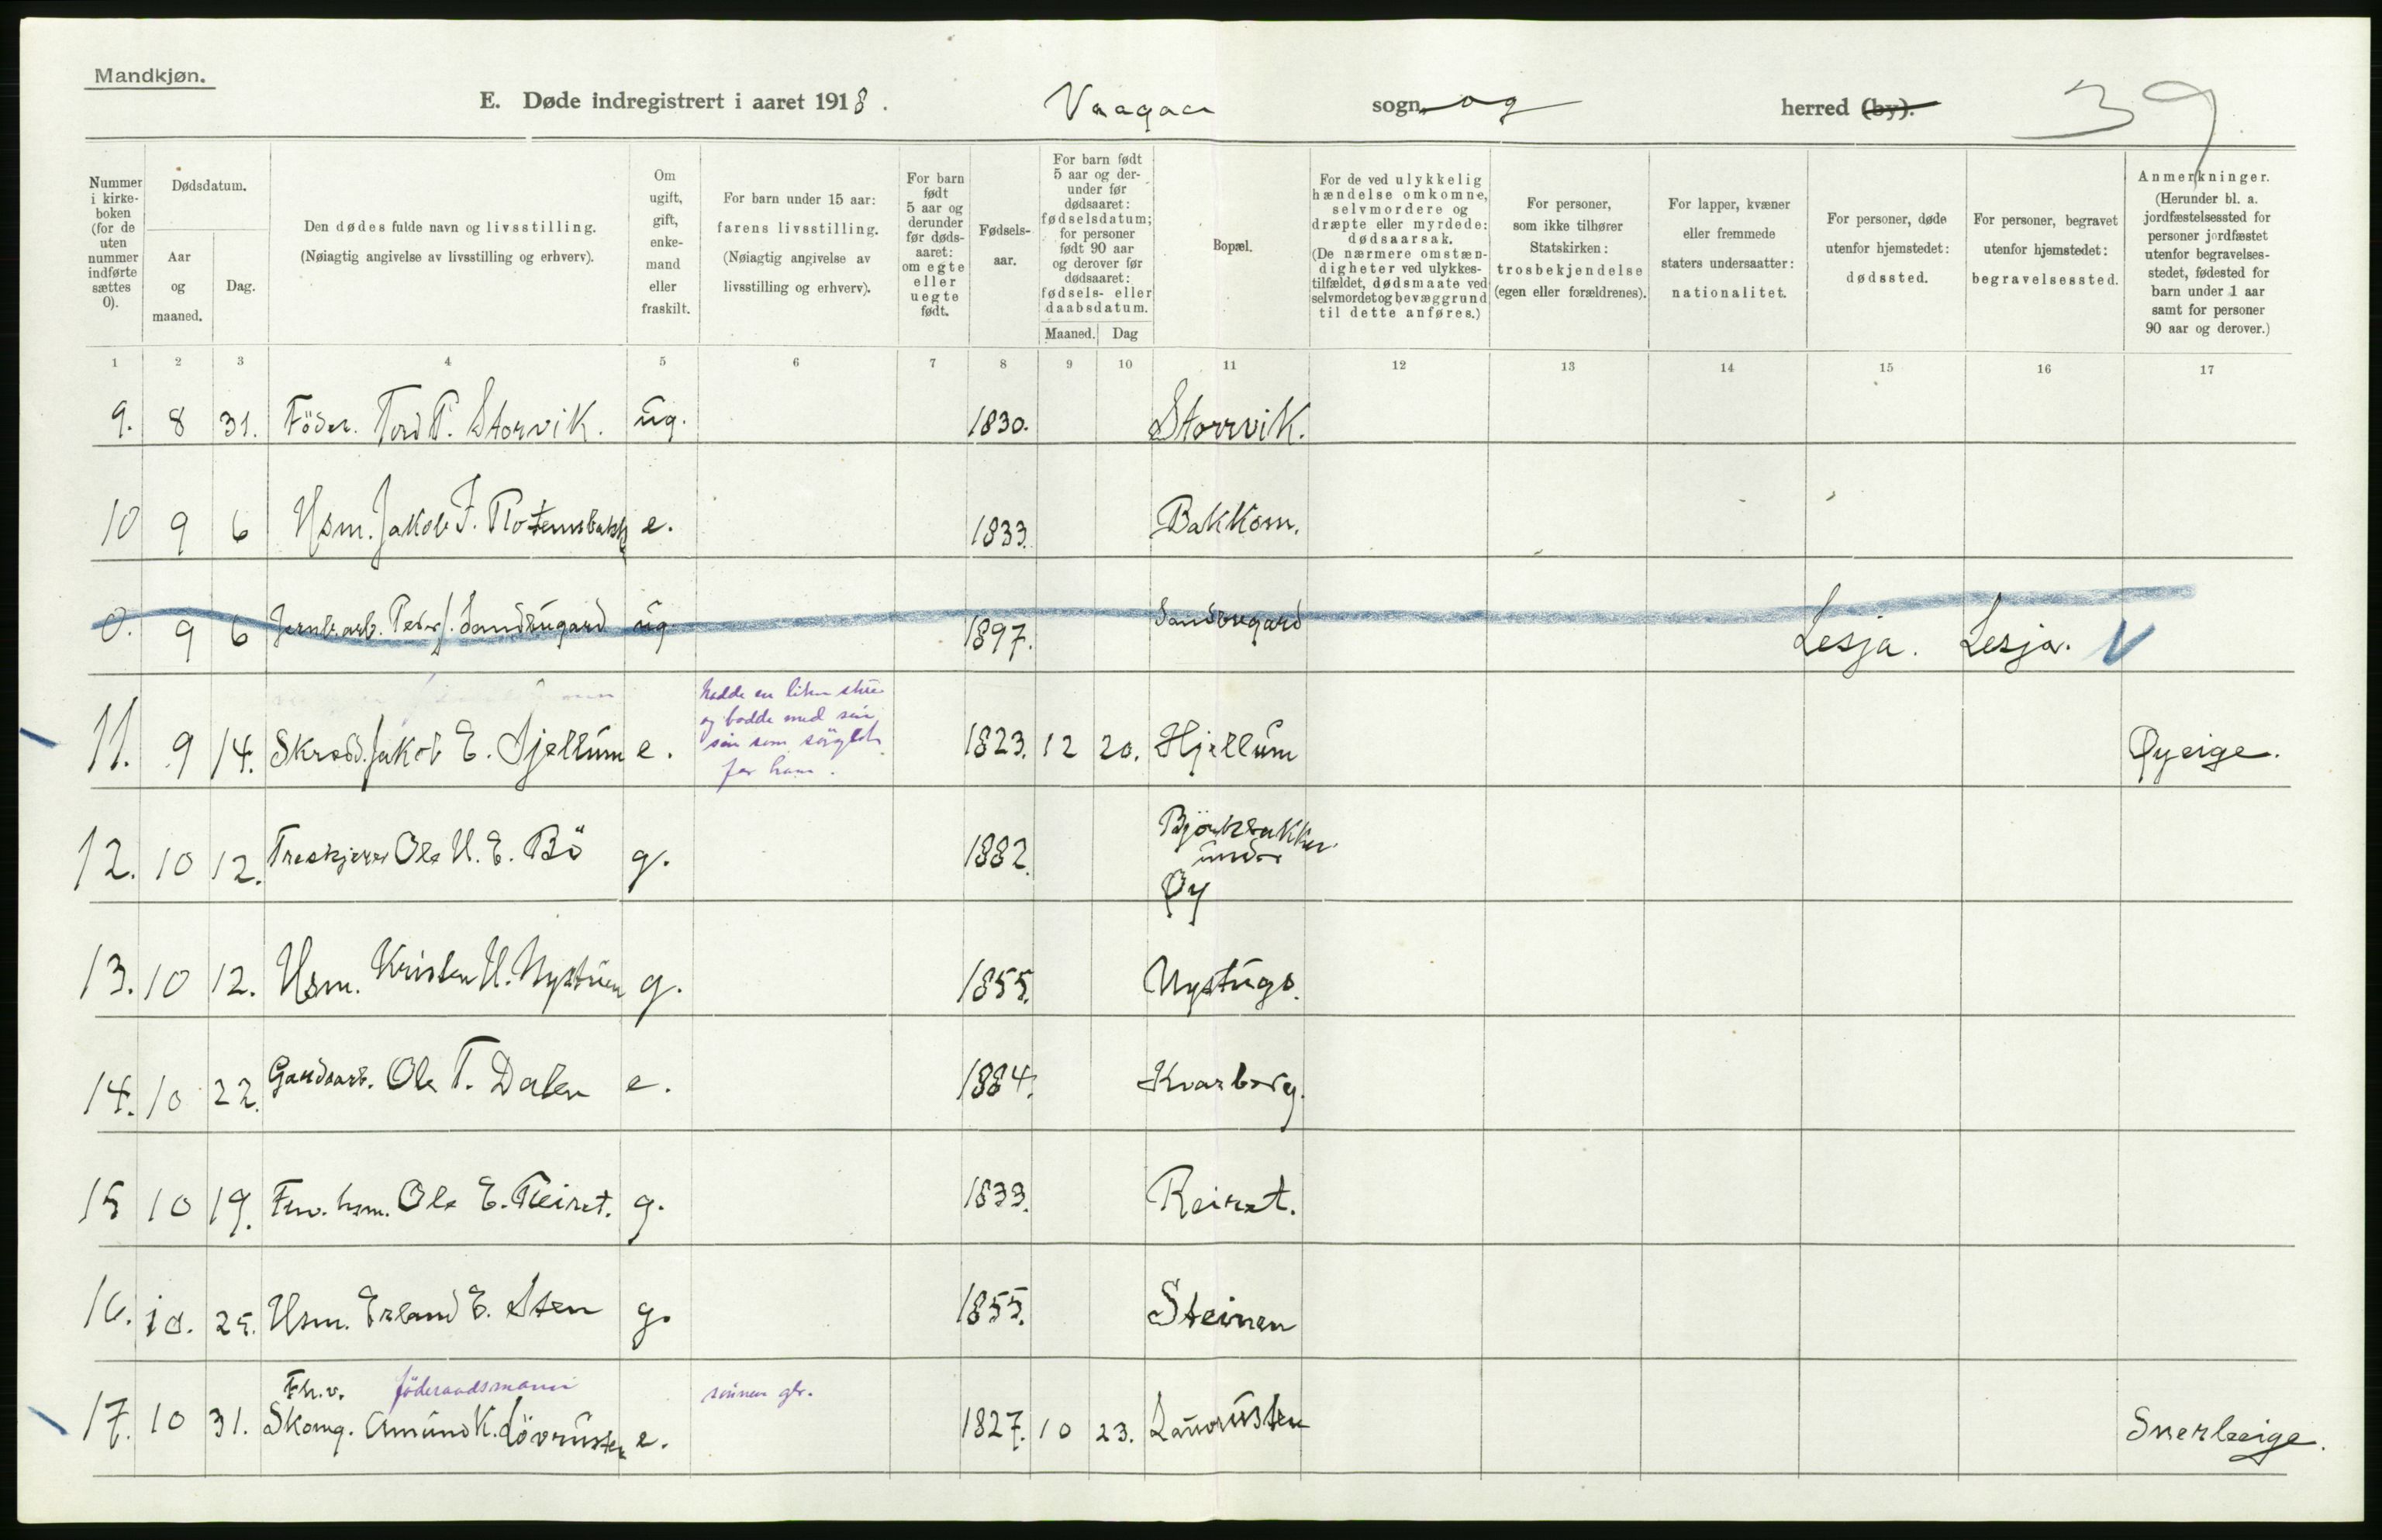 Mandkjøn.
E. Døde indregistrert i aaret 1918. Vaagaa sogn og herred (by). 39
Nummer i kirkeboken (for de uten nummer indførte sættes 0).
Dødsdatum.
Aar og maaned.
Dag.
Den dødes fulde navn og livsstilling.
(Nøiagtig angivelse av livsstilling og erhverv).
Om ugift, gift, enkemand eller fraskilt.
For barn under 15 aar: farens livsstilling. (Nøiagtig angivelse av livsstilling og erhverv).
For barn født 5 aar og derunder før dødsaaret: om egte eller uegte født.
Fødselsaar.
For barn født 5 aar og derunder før dødsaaret: fødselsdatum; for personer født 90 aar og derover før dødsaaret: fødsels- eller daabsdatum.
Maaned. Dag
Bopæl.
For de ved ulykkelig hændelse omkomne, selvmordere og dræpte eller myrdede: dødsaarsak. (De nærmere omstændigheter ved ulykkestilfældet, dødsmaate ved selvmordet og bevæggrund til dette anføres.)
For personer, som ikke tilhører Statskirken: trosbekjendelse (egen eller forældrenes).
For lapper, kvæner eller fremmede staters undersaatter: nationalitet.
For personer, døde utenfor hjemstedet: dødssted.
For personer, begravet utenfor hjemstedet: begravelsessted.
Anmerkninger. (Herunder bl. a. jordfæstelsessted for personer jordfæstet utenfor begravelsesstedet, fødested for barn under 1 aar samt for personer 90 aar og derover.)
1 2 3 4 5 6 7 8 9 10 11 12 13 14 15 16 17
9. 8 31. Föder. Tord P. Storvik. ug. 1830. Storrvik.
10 9 6 Hsm. Jakob J. e. 1833. Bakkom.
0. 9 6 Jernb.arb. Peder J. Sandbugard ug. 1897. Sandbugard Lesja. Lesja. V
hadde en liten stue
og bodde med sin
søn som sørget
for ham.
11. 9 14. Skrædd. Jakob E. Hjellum e. 1823. 12 20. Hjellum Øyeige.
12. 10 12. Treskjærer Ole H. E. Bö g. 1882. under Øy
13. 10 12. Hsm. Kristen H. Nystuen g. 1855. Nystugo.
14. 10 22. Gardsarb. Ole T. Dalen e. 1884. Kvarberg.
15 10 19. Fhv. hsm. Ole E. Reiret. g. 1833. Reiret.
16. 10. 25. Hsm. Erland E. Sten g. 1855. Steinen
Fh.v. föderaadsmann sönnen gbr.
17. 10 31. Skomg. Amund K. Lövrusten e. 1827. 10 23. Lauvrusten Snerleeige.